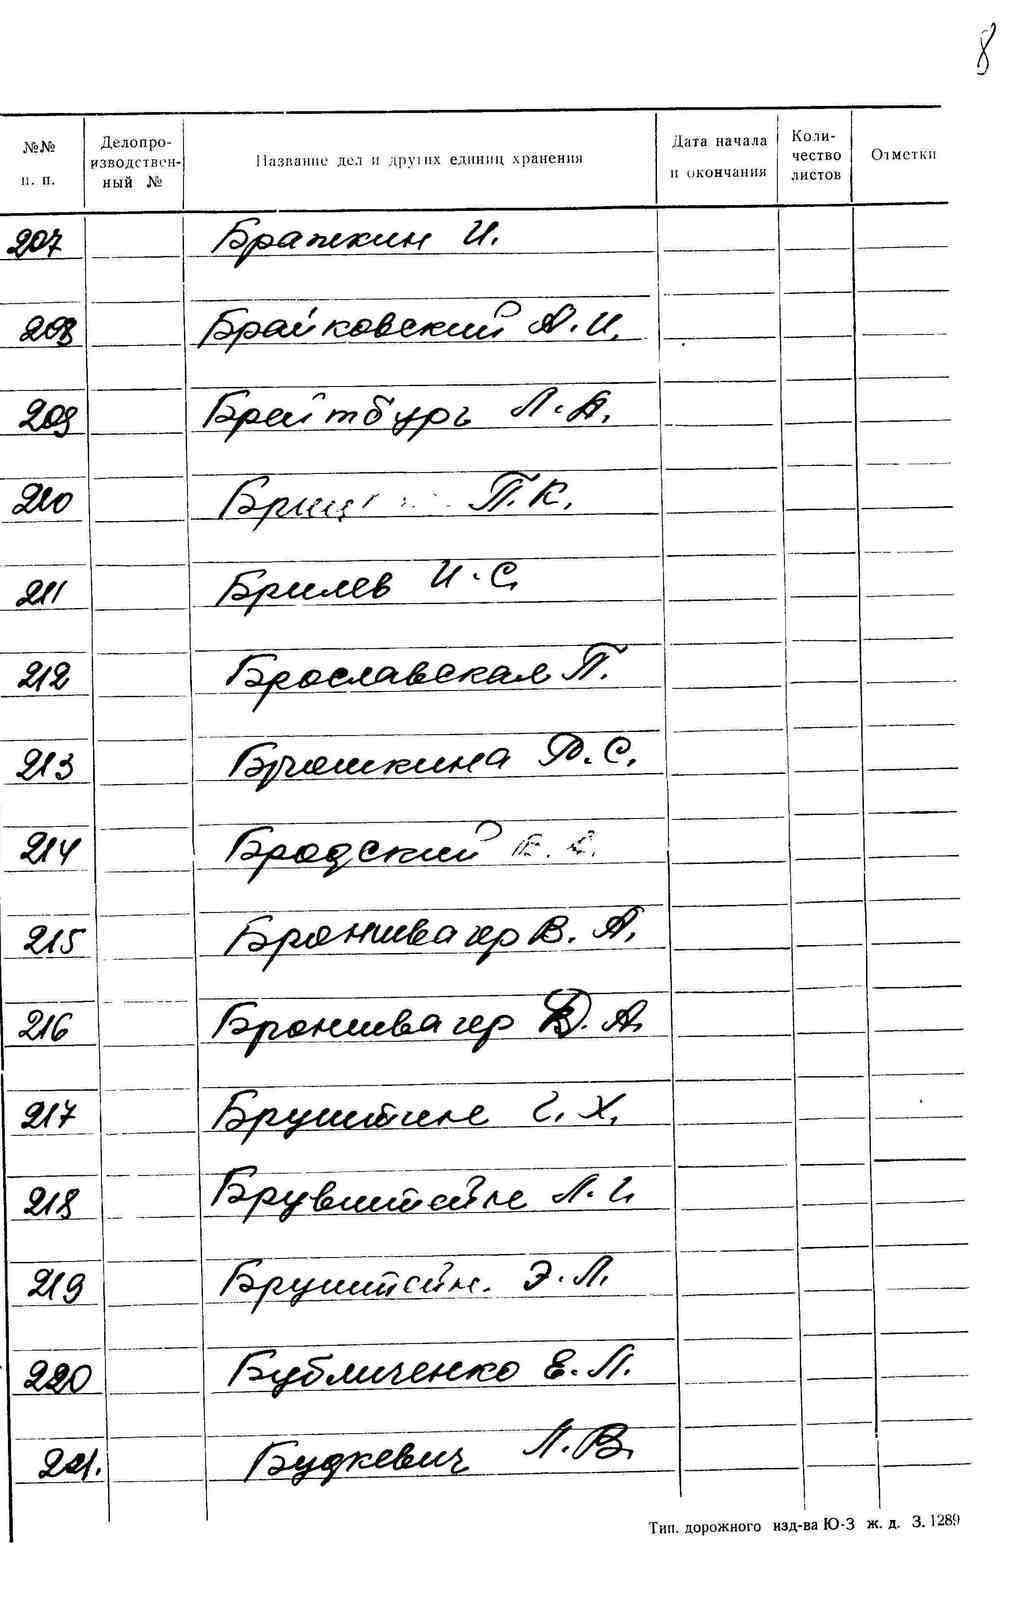 8
№№ п. п. Делопроизводственный № Название дел и других единиц хранения Дата начала и окончания Количество листов Отметки
207 Бражкин И.
208 Брайковский А. И.
209 Брейтбургъ Л. А.
210 П. К.
211 Брилев И. С.
212 Брославская П.
213 С.
214 Бродский
215 Броншвагер В. А.
216 Броншвагер Д. А.
217 Х.
218 Л.
219 Бруштейн. Э. Л.
220 Бубличенко Е. Л.
221. Будкевич Л. В.
Тип. дорожного изд-ва Ю-З ж. д. З. 1289